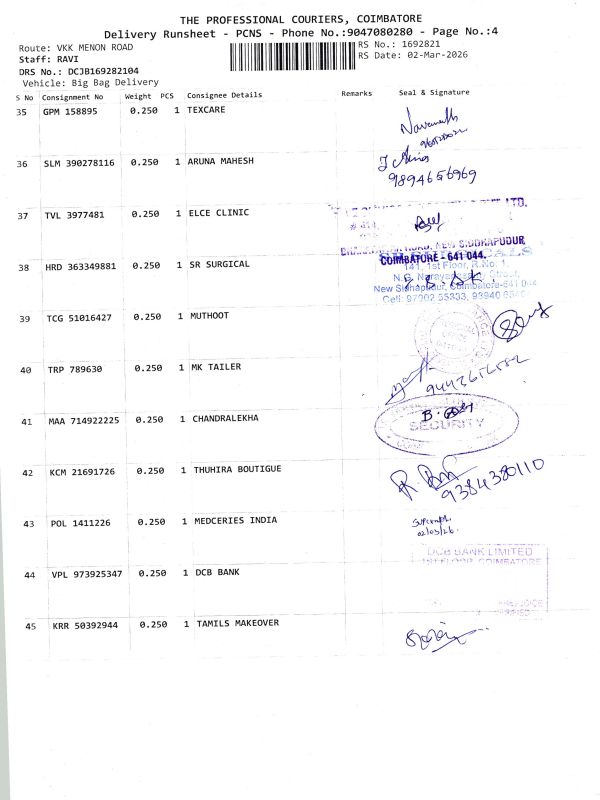 THE PROFESSIONAL COURIERS, COIMBATORE
Delivery Runsheet - PCNS - Phone No.:9047080280 - Page No.:4
Route: VKK MENON ROAD
RS No.: 1692821
Staff: RAVI
RS Date: 02-Mar-2026
DRS No.: DCJB169282104
Vehicle: Big Bag Delivery
S No Consignment No Weight PCS Consignee Details Remarks Seal & Signature
35 GPM 158895 0.250 1 TEXCARE
36 SLM 390278116 0.250 1 ARUNA MAHESH
9894656969
37 TVL 3977481 0.250 1 ELCE CLINIC
LTD.
ROAD, NEW SIDDHAPUDUR,
COIMBATORE - 641 044.
38 HRD 363349881 0.250 1 SR SURGICAL
141, 1st Floor, R.No. 1,
N.G. Narayanasamy Street,
New Sidhapudur, Coimbatore-641 044
Cell: 97902 35333, 93940
39 TCG 51016427 0.250 1 MUTHOOT
40 TRP 789630 0.250 1 MK TAILER
41 MAA 714922225 0.250 1 CHANDRALEKHA
SECURITY
42 KCM 21691726 0.250 1 THUHIRA BOUTIGUE
9384380110
43 POL 1411226 0.250 1 MEDCERIES INDIA
02/03/26.
DCB BANK LIMITED
1ST FLOOR, COIMBATORE
44 VPL 973925347 0.250 1 DCB BANK
45 KRR 50392944 0.250 1 TAMILS MAKEOVER